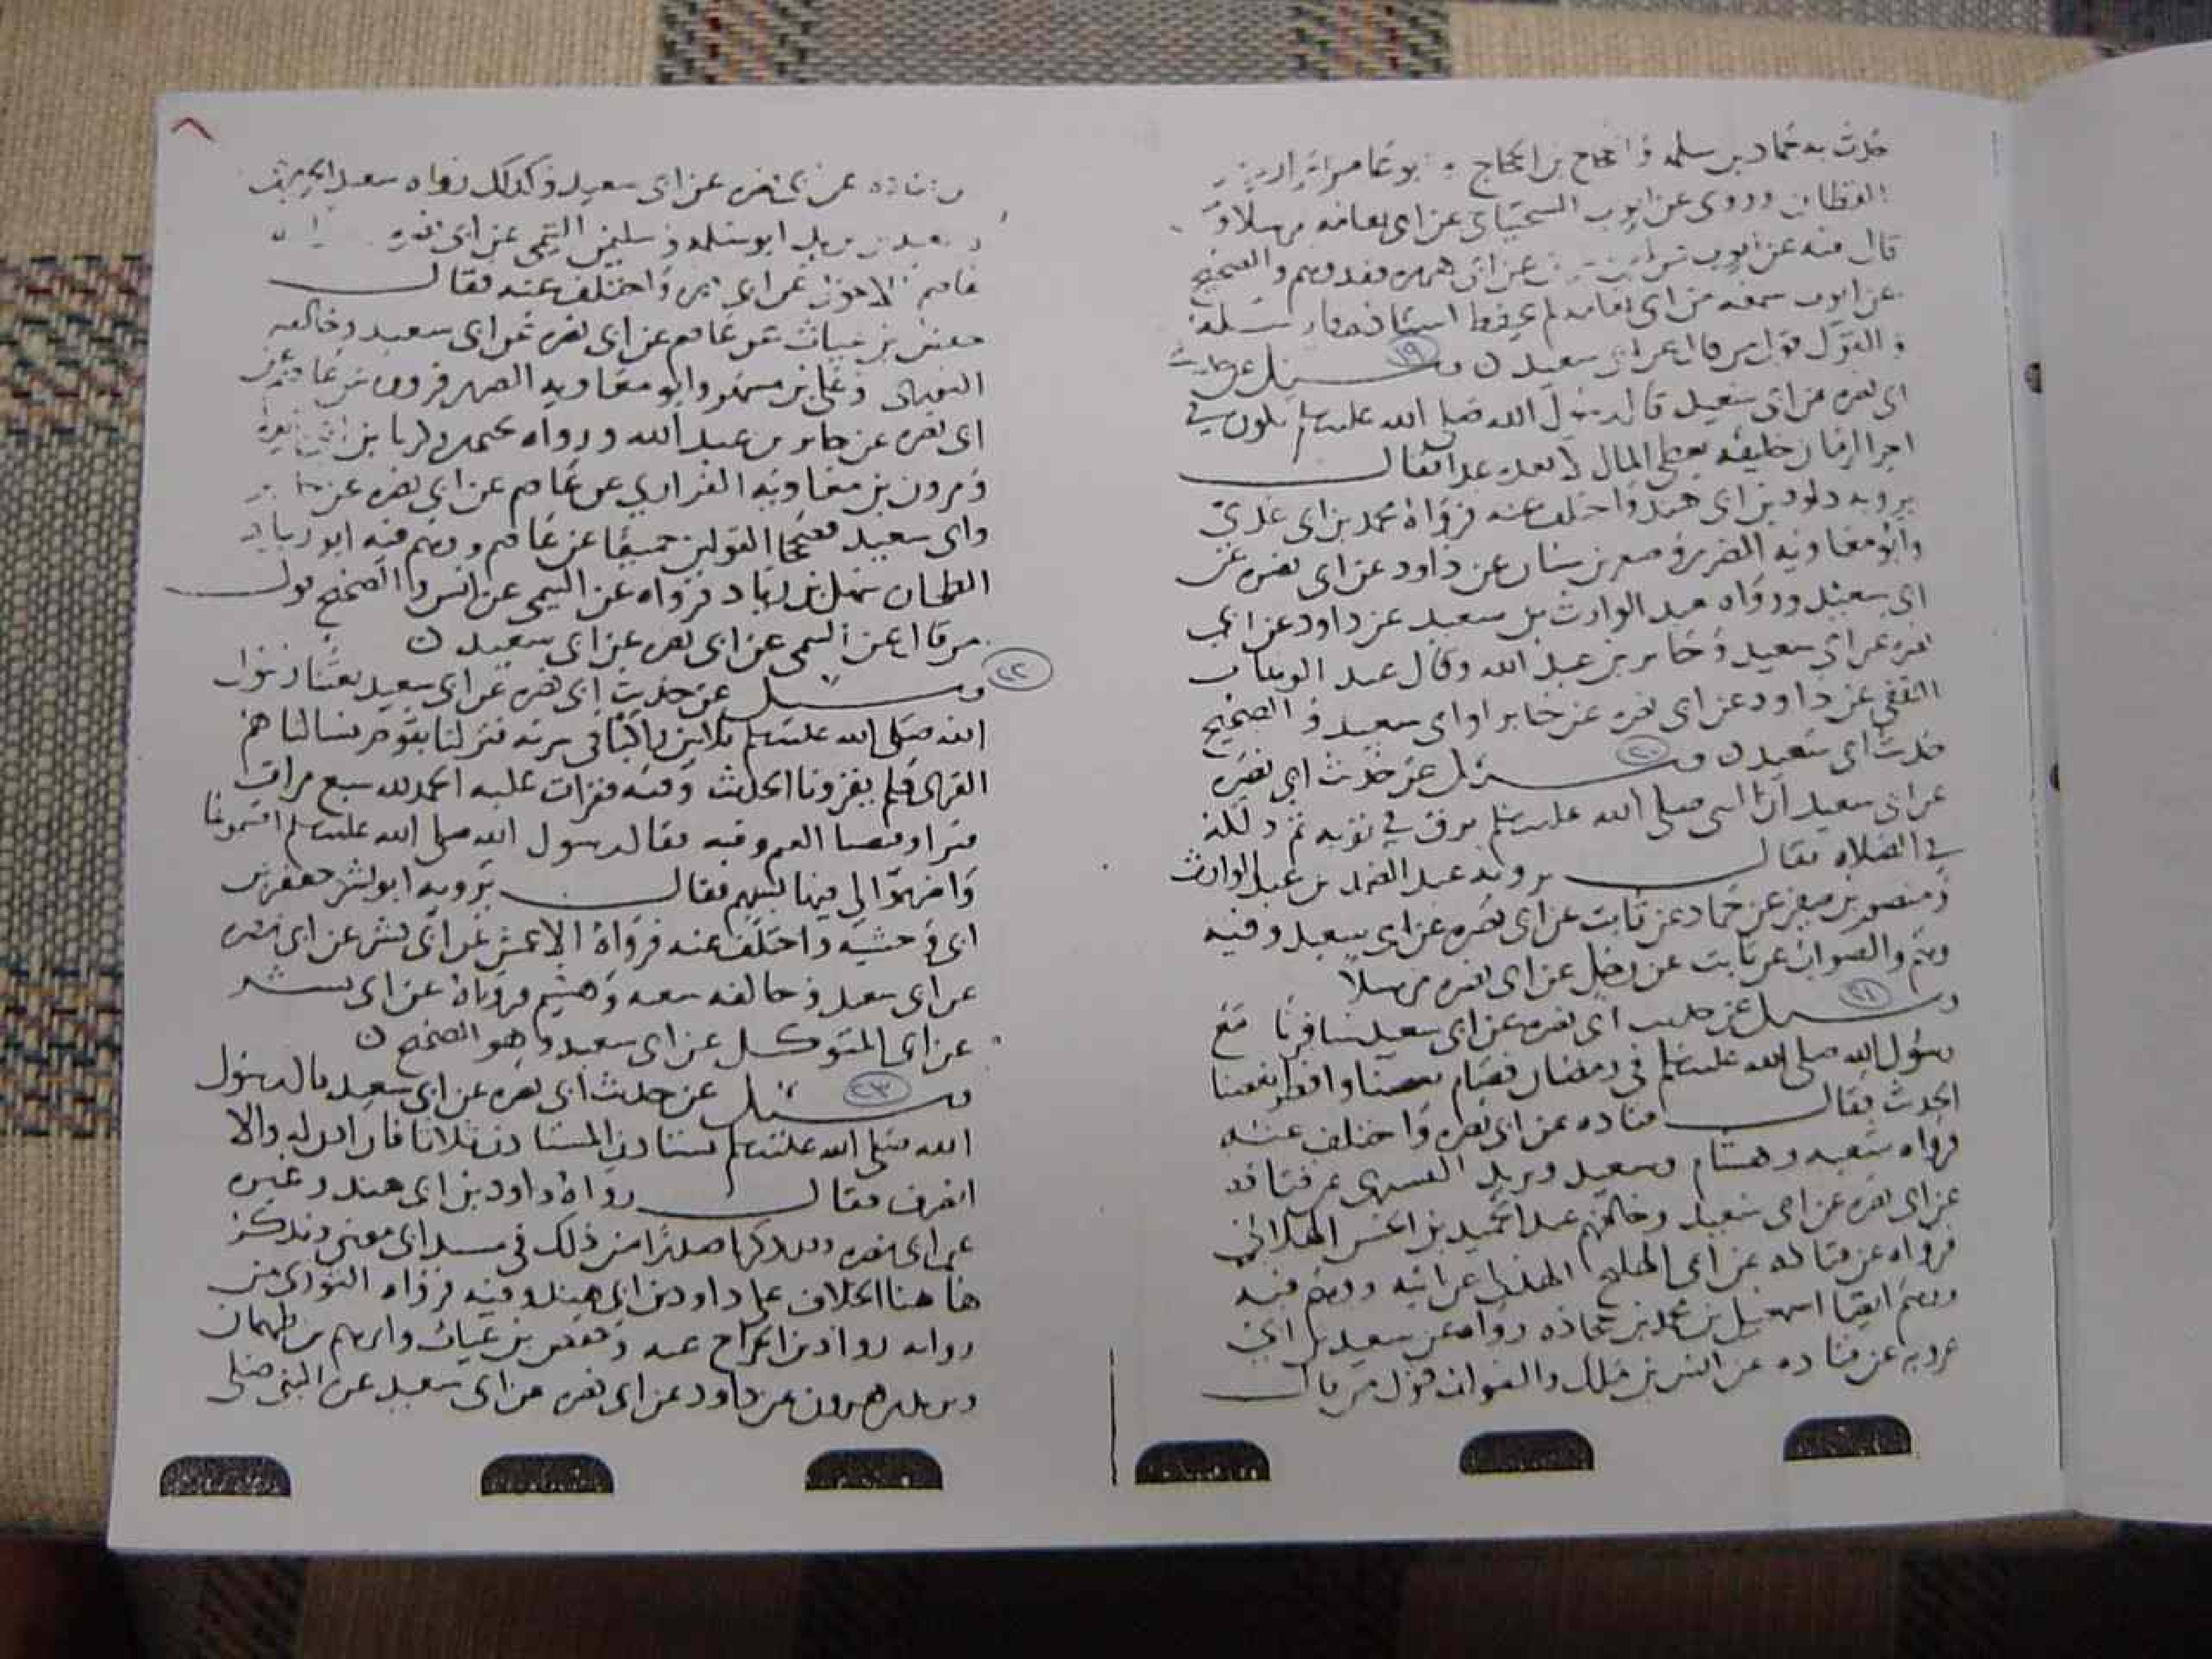 حدث به حماد بن سلمه و الحجاج بن الحجاج و ابو عامر
القطان وروى عن ايوب السختياني عن ابي نعامه مرسلا و
قال فيه عن ايوب عن ابي هريره فقد وهم والصحيح
عن ايوب سمعه من ابي نعامه لم يحفظ اسناده
و القول قول من قال عن ابي سعيد ن ١٩ وسئل عن حديث
ابي نضره عن ابي سعيد قال رسول الله صلى الله عليه وسلم يكون في
اخر الزمان خليفه يعطي المال لا يعده عدا فقال
يرويه داود بن ابي هند واختلف عنه فرواه محمد بن ابي عدي
وابو معاويه الضرير و عن داود عن ابي نضره عن
ابي سعيد ورواه عبد الوارث بن سعيد عن داود عن ابي
نضره عن ابي سعيد و جابر بن عبد الله وقال عبد الوهاب
الثقفي عن داود عن ابي نضره عن جابر او ابي سعيد و الصحيح
حديث ابي سعيد ن ٢٠ وسئل عن حديث ابي نضره
عن ابي سعيد ان النبي صلى الله عليه وسلم بزق في ثوبه ثم دلكه
في الصلاه فقال يرويه عبد الصمد بن عبد الوارث
و منصور بن صقير عن حماد عن ثابت عن ابي نضره عن ابي سعيد وفيه
وهم والصواب عن ثابت عن رجل عن ابي نضره مرسلا
٢١ وسئل عن حديث ابي نضره عن ابي سعيد سافرنا مع
رسول الله صلى الله عليه وسلم في رمضان فصام بعضنا وافطر بعضنا
الحديث فقال قتاده عن ابي نضره واختلف عنه
فرواه شعبه وهشام وسعيد ويزيد التستري عن قتاده
عن ابي نضره عن ابي سعيد وخالفهم عبد الحميد بن الحسن الهلالي
فرواه عن قتاده عن ابي المليح الهذلي عن ابيه ووهم فيه
ووهم ايضا اسمعيل بن محمد بن جحاده رواه عن سعيد بن ابي
عروبه عن قتاده عن انس بن ملك والصواب قول من قال
عن ابي نضره عن ابي سعيد وكذلك رواه سعيد الجريري
و سعيد بن يزيد ابو سلمه و سليمن التيمي عن ابي نضره
عاصم الاحول عن ابي نضره واختلف عنه فقال
حفص بن غياث عن عاصم عن ابي نضره عن ابي سعيد وخالفه
وعلي بن مسهر وابو معاويه الضرير فرووه عن عاصم عن
ابي نضره عن جابر بن عبد الله ورواه يحيى بن زكريا بن ابي زائده
و مرون بن معاويه الفزاري عن عاصم عن ابي نضره عن جابر
وابي سعيد فصححا القولين جميعا عن عاصم ووهم فيه ابو زياد
الطحان سهل بن زياد فرواه عن التيمي عن انس والصحيح قول
من قال عن التيمي عن ابي نضره عن ابي سعيد ن
٢٢ وسئل عن حديث ابي نضره عن ابي سعيد بعثنا رسول
الله صلى الله عليه وسلم ثلاثين راكبا في سريه فنزلنا بقوم فسالناهم
القرى فلم يقرونا الحديث وفيه فقرات عليه الحمد لله سبع مرات
فبرا وقبضنا الغنم وفيه فقال رسول الله صلى الله عليه وسلم اقسموها
واضربوا لي فيها بسهم فقال يرويه ابو بشر جعفر بن
ابي وحشيه واختلف عنه فرواه الاعمش عن ابي بشر عن ابي نضره
عن ابي سعيد وخالفه شعبه وهشيم فروياه عن ابي بشر
عن ابي المتوكل عن ابي سعيد وهو الصحيح ن
٢٣ وسئل عن حديث ابي نضره عن ابي سعيد قال رسول
الله صلى الله عليه وسلم يستاذن المستاذن ثلاثا فان اذن له والا
انصرف فقال رواه داود بن ابي هند وغيره
عن ابي نضره وقد ذكرنا صدرا من ذلك في مسند ابي موسى ونذكر
ها هنا الخلاف على داود بن ابي هند وفيه فرواه الثوري من
روايه رواد بن الجراح عنه وحفص بن غياث وابرهيم بن طهمان
ويزيد بن هرون عن داود عن ابي نضره عن ابي سعيد عن النبي صلى